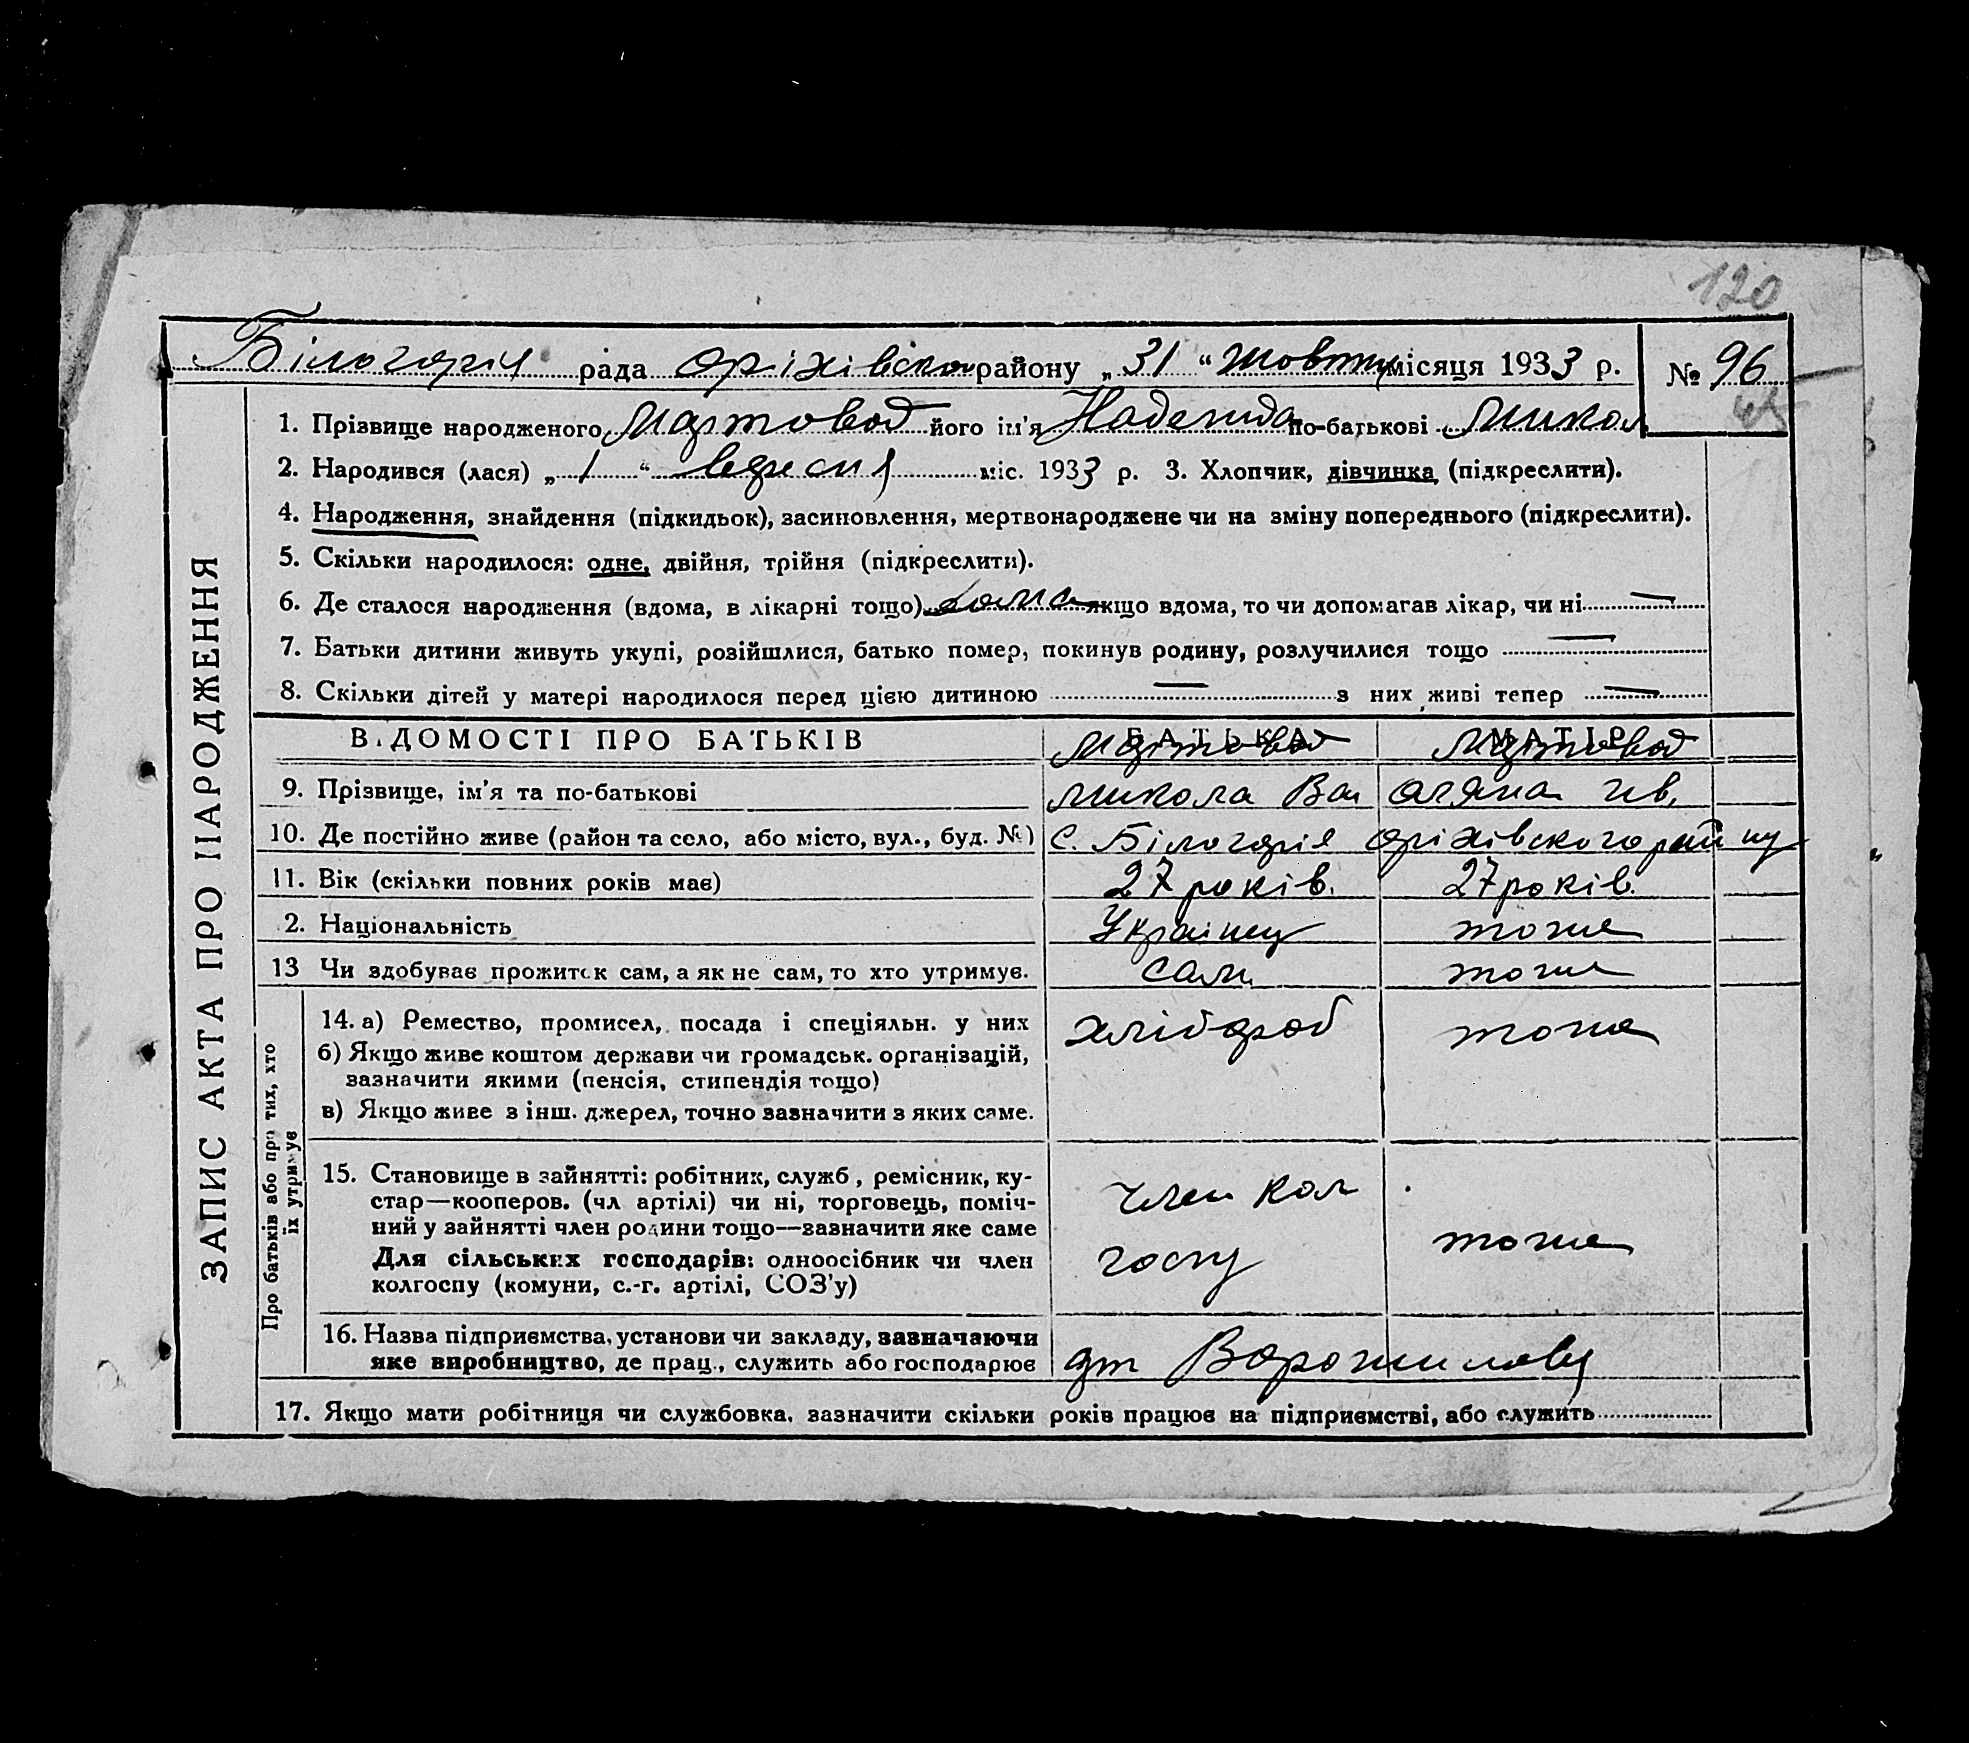 120
Білогорія рада оріхівсково району „31“ Жовтня місяця 1933 р. № 96
1. Прізвище народженого Мартовод його ім'я Надежда по-батькові Микол
2. Народився (лася) „1“ вересня міс. 1933 р. 3. Хлопчик, дівчинка (підкреслити).
4. Народження, знайдення (підкидьок), засиновлення, мертвонароджене чи на зміну попереднього (підкреслити).
5. Скільки народилося: одне, двійня, трійня (підкреслити).
6. Де сталося народження (вдома, в лікарні тощо) дома якщо вдома, то чи допомагав лікар, чи ні —
7. Батьки дитини живуть укупі, розійшлися, батько помер, покинув родину, розлучилися тощо —
8. Скільки дітей у матері народилося перед цією дитиною — з них живі тепер —
ЗАПИС АКТА ПРО НАРОДЖЕННЯ
ВІДОМОСТІ ПРО БАТЬКІВ БАТЬКА МАТІР
Мартовод Мартовод
9. Прізвище, ім'я та по-батькові Микола Ва Оляна Ів.
10. Де постійно живе (район та село, або місто, вул., буд. №) С. Білогорія оріхівского району
11. Вік (скільки повних років має) 27 років. 27 років.
2. Національність Українец тоже
13 Чи здобуває прожиток сам, а як не сам, то хто утримує. сам тоже
Про батьків або про тих, хто
їх утримує
14. а) Ремество, промисел, посада і спеціяльн. у них хлібороб тоже
б) Якщо живе коштом держави чи громадськ. організацій,
зазначити якими (пенсія, стипендія тощо)
в) Якщо живе з інш. джерел, точно зазначити з яких саме.
15. Становище в зайнятті: робітник, служб, ремісник, ку-
стар—кооперов. (чл артілі) чи ні, торговець, поміч- член кол
ний у зайнятті член родини тощо—зазначити яке саме
Для сільських господарів: одноосібник чи член госпу тоже
колгоспу (комуни, с.-г. артілі, СОЗ'у)
16. Назва підприємства, установи чи закладу, зазначаючи
яке виробництво, де прац., служить або господарює арт Ворошилова
17. Якщо мати робітниця чи службовка, зазначити скільки років працює на підприємстві, або служить